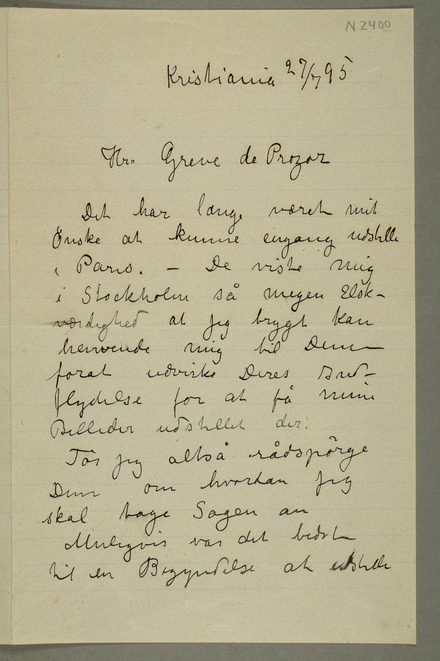 N 2400
Kristiania 27/7 95
Hr. Greve de Prozor
Det har længe været mit
Ønske at kunne engang udstille
i Paris. – De viste mig
i Stockholm så megen Elsk-
værdighed at jeg trygt kan
henvende mig til Dem
forat udvirke Deres Ind-
flydelse for at få mine
Billeder udstillet der.
Tør jeg altså rådspørge
Dem om hvordan jeg
skal tage Sagen an
Muligvis var det bedst
til en Begyndelse at udstille